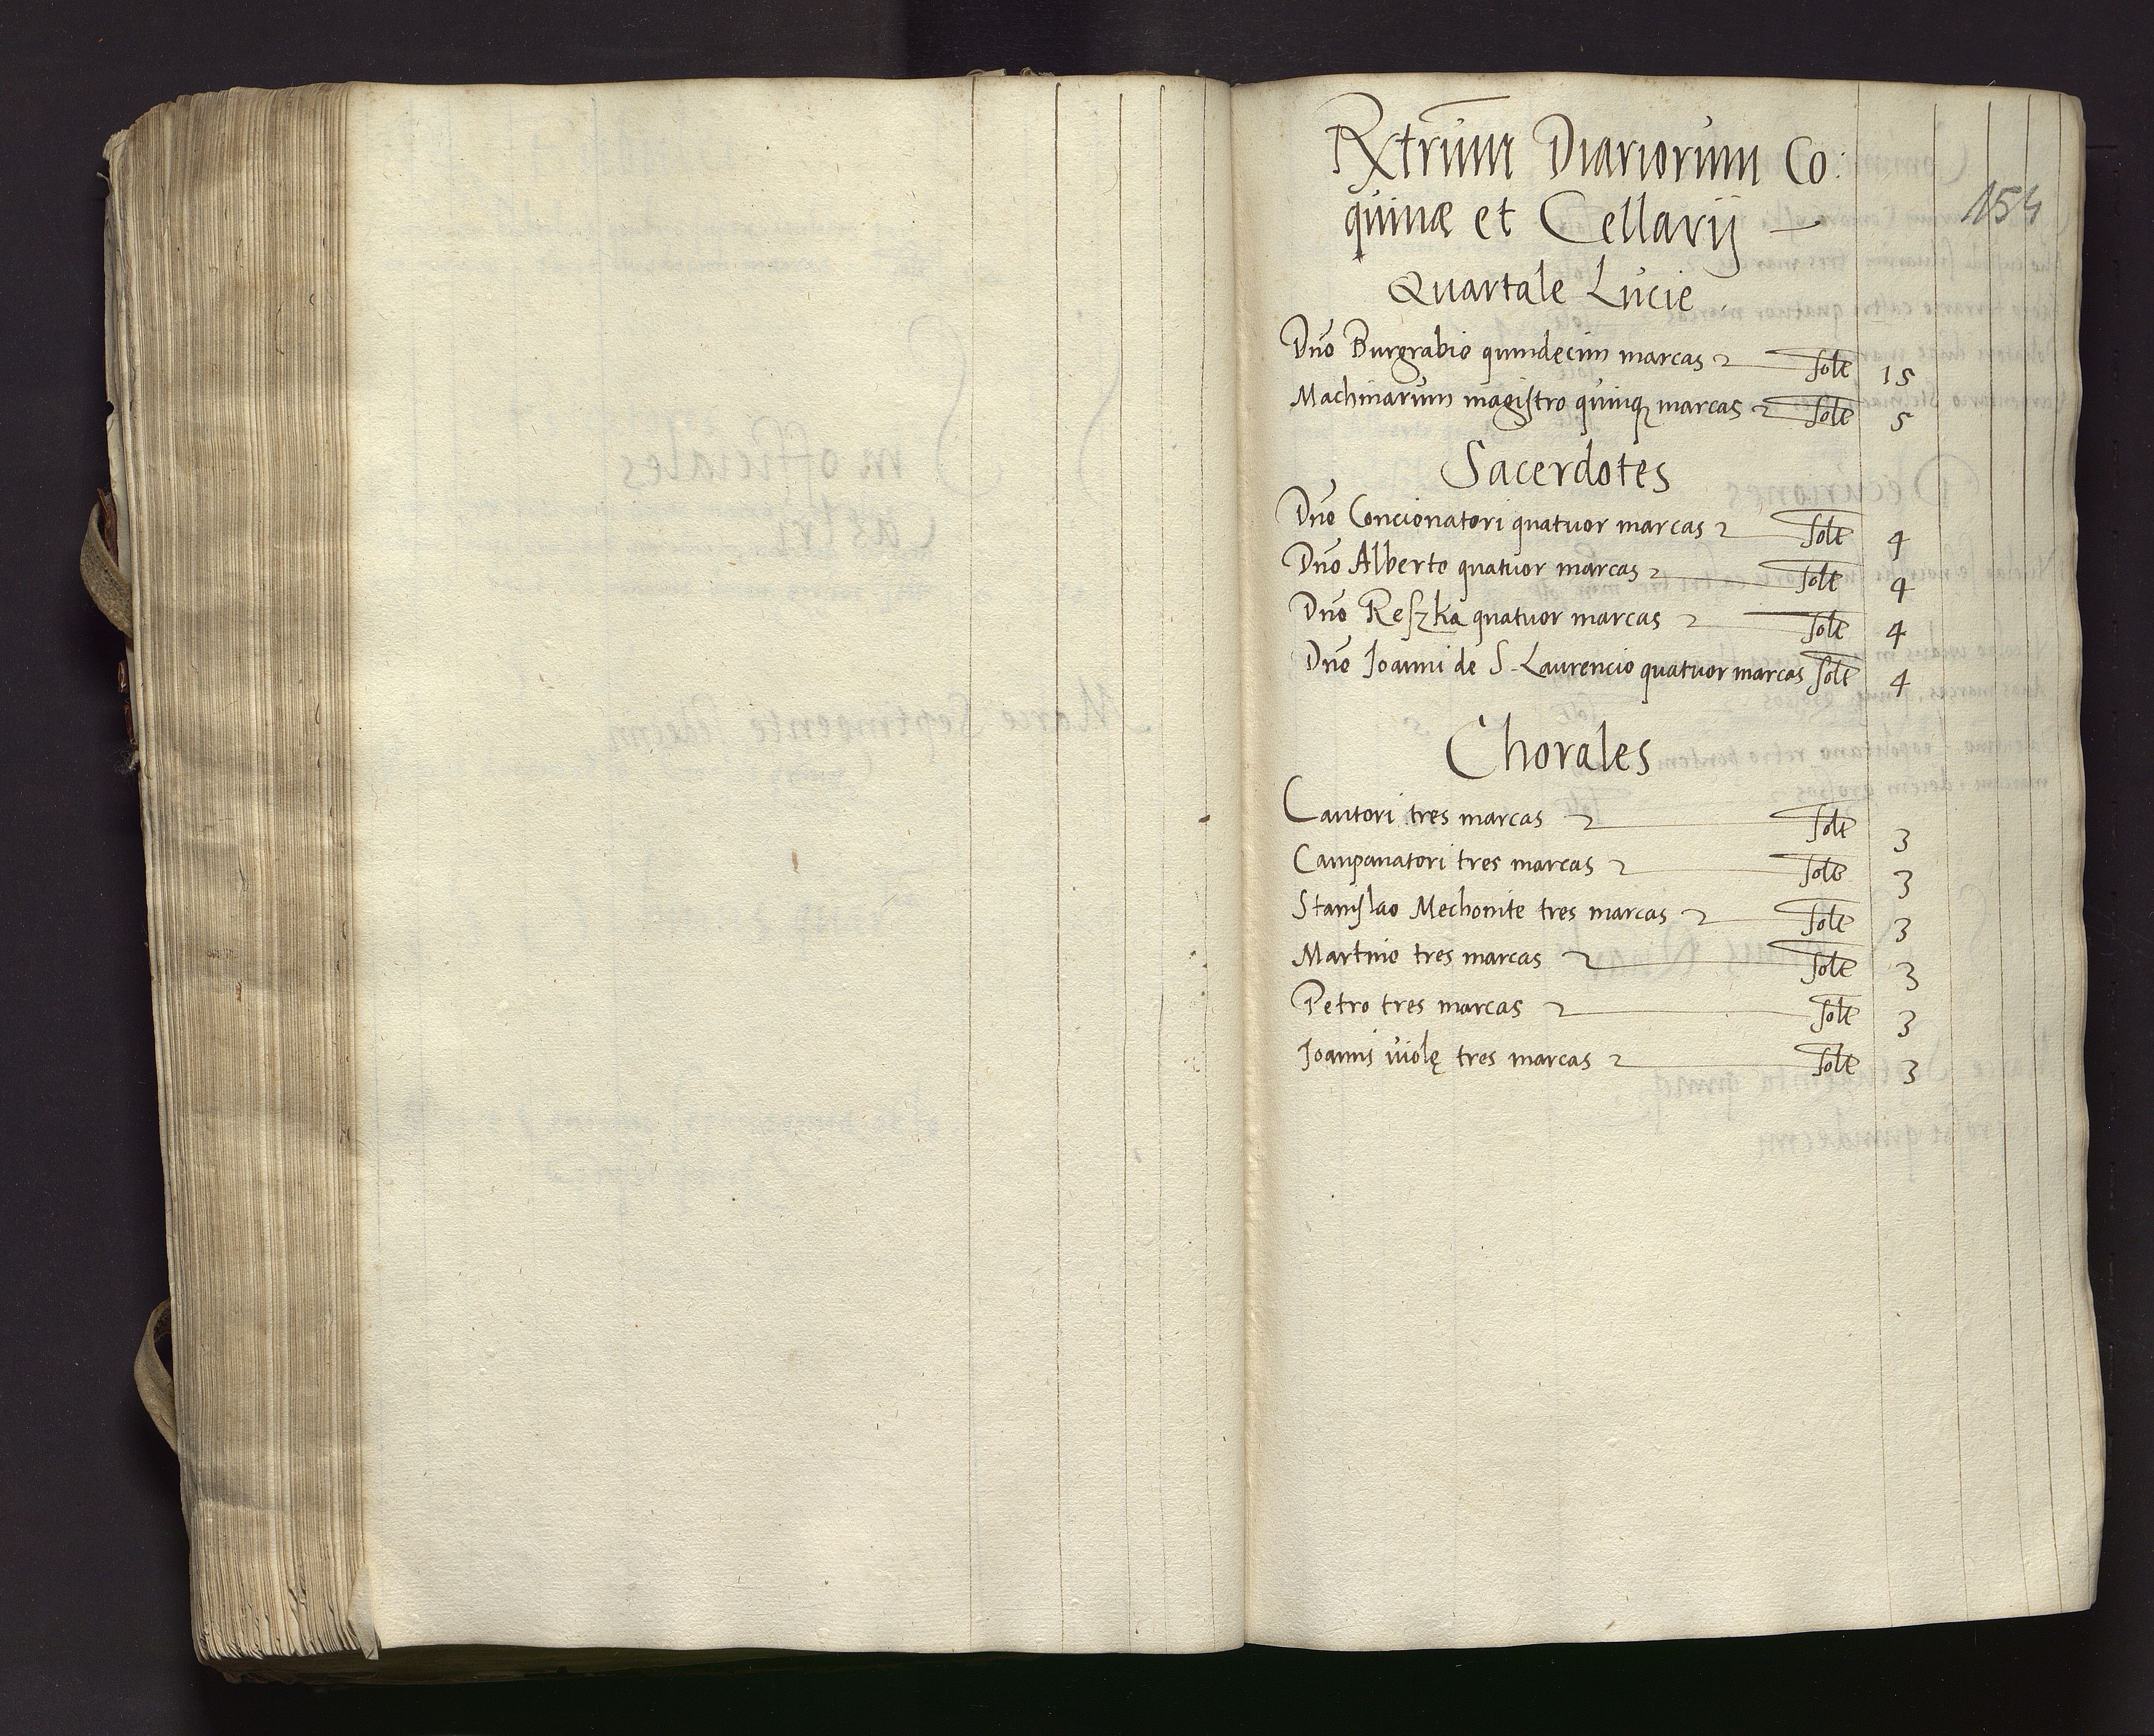 Rxtrum Diariorum Co:
quinæ et Cellarij
154
Quartale Lucie
Dno Burgrabio quindecim marcas solt 15
Machinarum magistro quinq marcas solt 5
Sacerdotes
Dno Concionatori quatuor marcas solt 4
Dno Alberto quatuor marcas solt 4
Dno Reszka quatuor marcas solt 4
Dno Joanni de S. Laurencio quatuor marcas solt 4
Chorales
Cantori tres marcas solt 3
Campanatori tres marcas solt 3
Stanislao Mechonite tres marcas solt 3
Martino tres marcas solt 3
Petro tres marcas solt 3
Joanni violę tres marcas solt 3